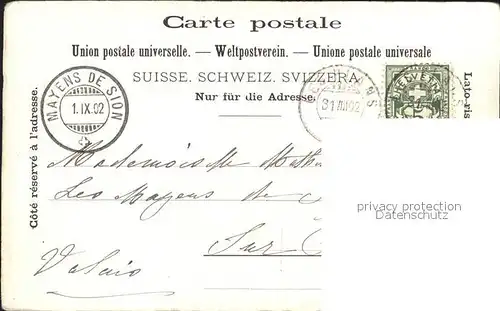 Carte postale
Union postale universelle. — Weltpostverein. — Unione postale universale
SUISSE. SCHWEIZ. SVIZZERA.
Nur für die Adresse
MAYENS DE SION
1.IX.02
31
HELVETIA
Côté réservé à l'adresse.
Lato ris
Mademoiselle
Les Mayens de
Sur
Valais
privacy protection
Datenschutz